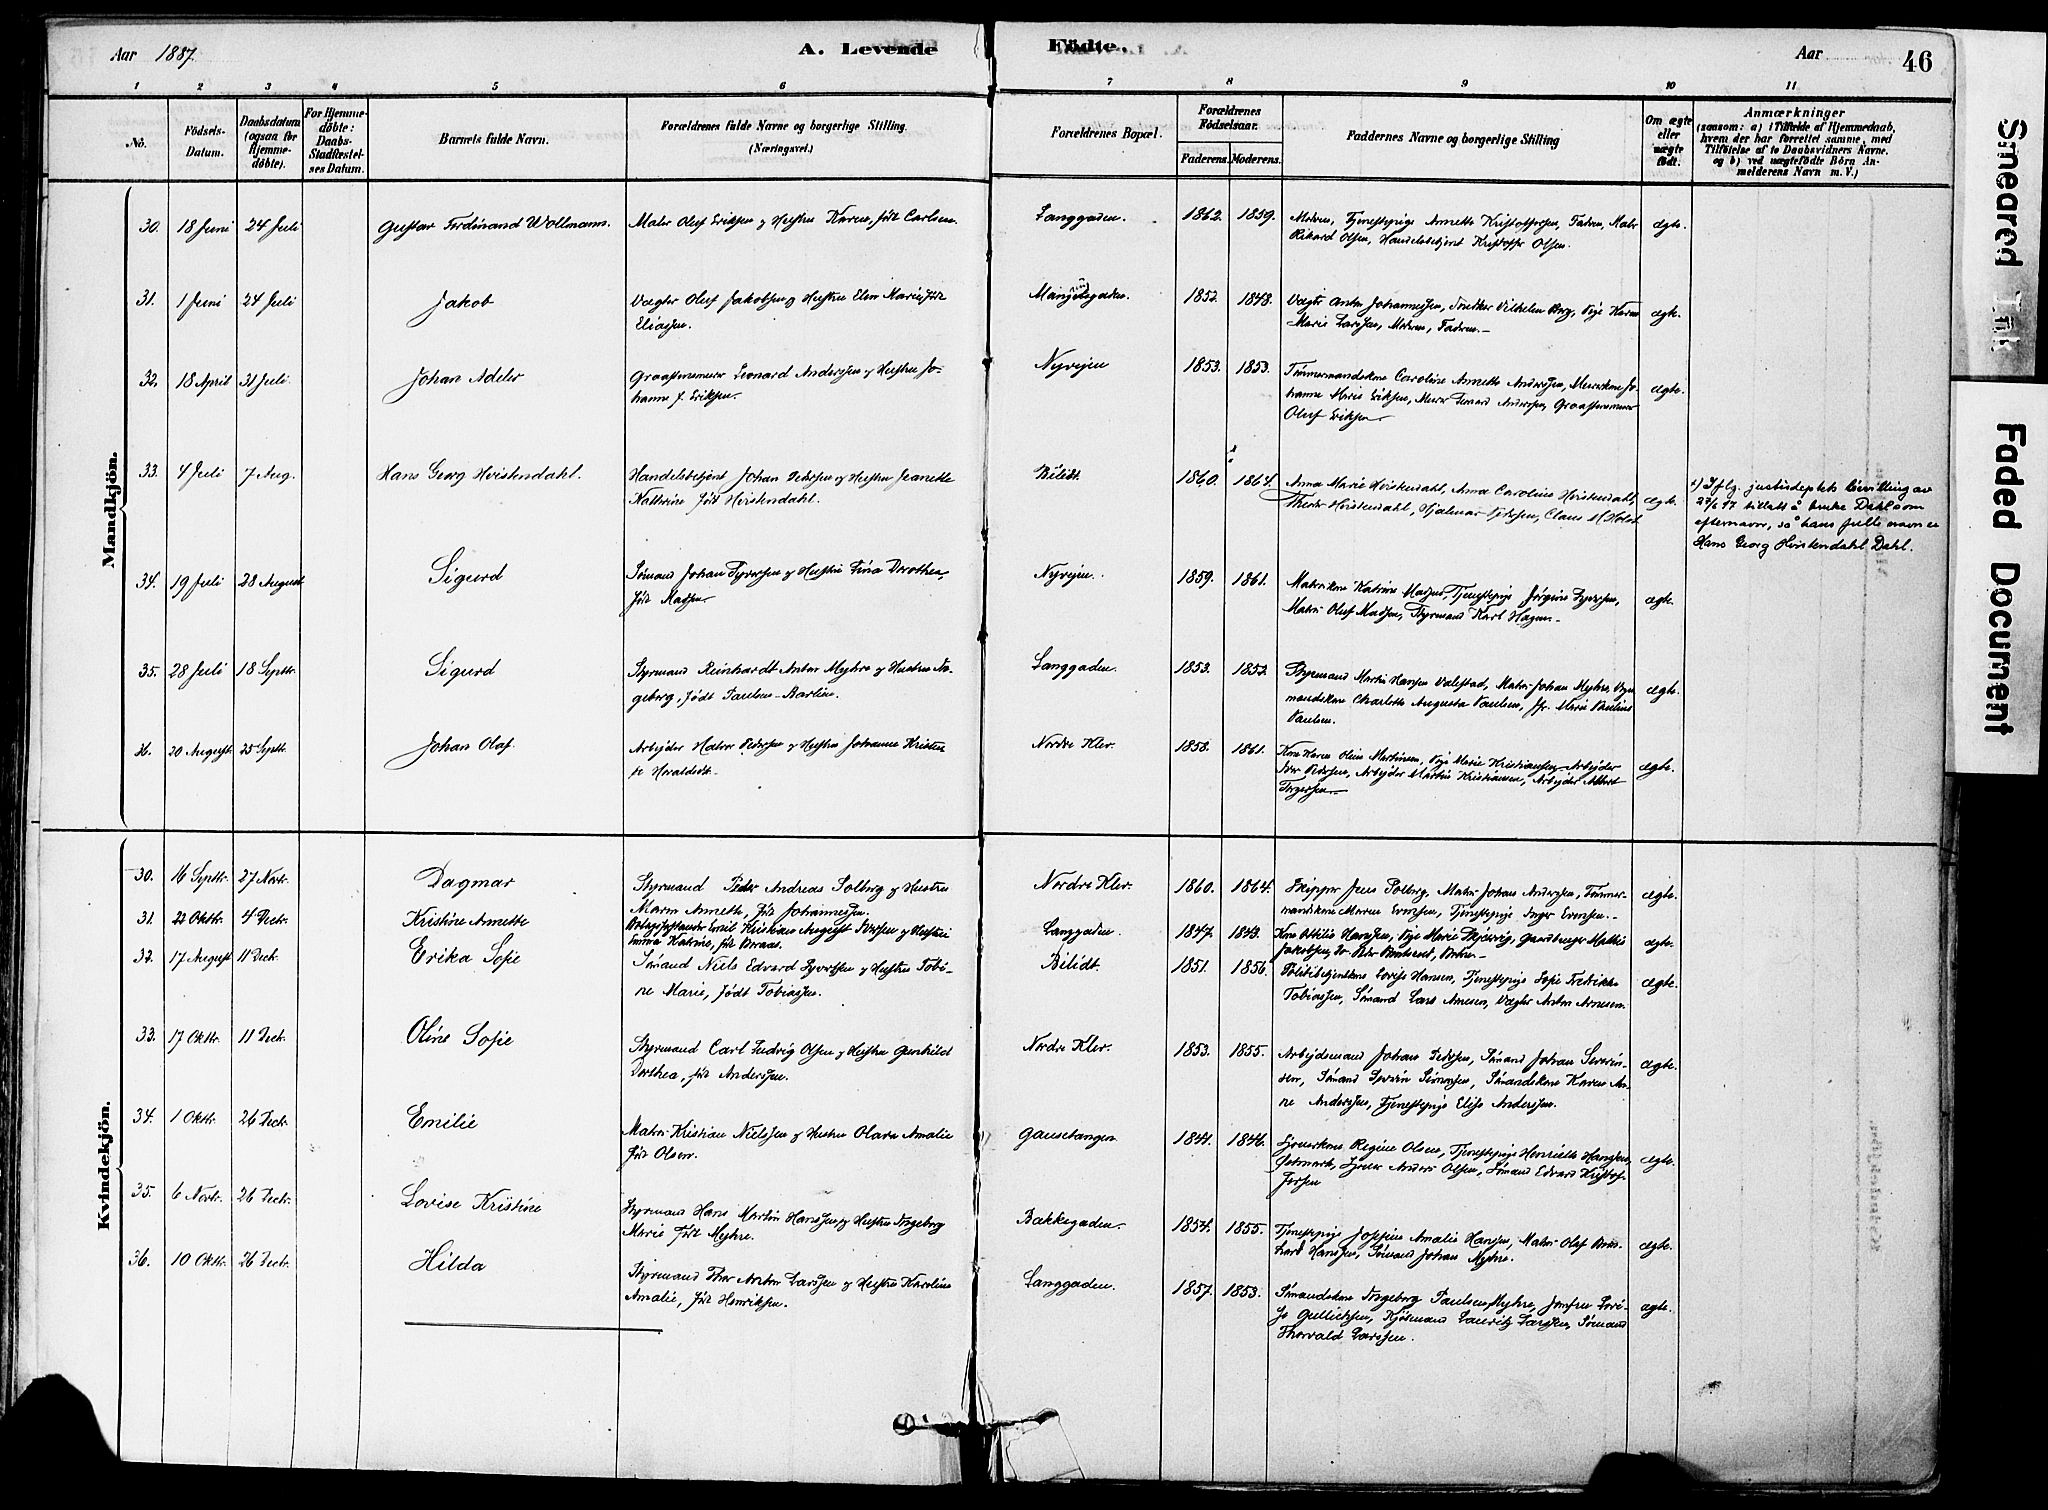 Aar 1887.
A. Levende Fødte.
Aar
46
1 2 3 4 5 6 7 8 9 10 11
No.
Födsels-Datum.
Daabsdatum (ogsaa for Hjemmedöbte).
For Hjemmedöbte: Daabs-Stadfæstelses Datum.
Barnets fulde Navn.
Forældrenes fulde Navne og borgerlige Stilling.
(Næringsvei.)
Forældrenes Bopæl.
Forældrenes Födselsaar.
Faderens. Moderens.
Faddernes Navne og borgerlige Stilling
Om ægte eller uægte födt.
Anmærkninger
(saasom: a) i Tilfælde af Hjemmedaab, hvem der har forrettet samme, med Tilföielse af to Daabsvidners Navne, og b) ved uægtefödte Börn Anmelderens Navn m. V.)
Mandkjön.
30. 18 Juni 24 Juli Gustav Ferdinand Wollmann. Matr Oluf Eriksen og Hustru Karen, født Carlsen. Langgaden. 1862. 1859. Moderen, Tjenestepige Annette Kristoffersen, Faderen, Matr
Rikard Olsen, Handelsbetjent Kristoffer Olsen. ægte.
31. 1 Juni 24 Juli Jakob Vægter Oluf Jakobsen og Hustru Elen Marie født
Eliassen. 1852. 1848. Vægter Anton Johannessen, Snekker Vilhelm Berg, Pige Karen
Marie Larssen, Moderen, Faderen.- ægte.
32. 18 April 31 Juli Johan Adeler Graastensmurer Leonard Anderssen og Hustru Jo-
hanne f. Eriksen. Nyvejen 1853. 1853. Tømmermandskone Caroline Annette Anderssen, Murerkone Jo-
hanne Marie Eriksen, Murer Anderssen, Graastensmurer
Oluf Eriksen. ægte.
33. 4 Juli 7 Aug. Hans Georg Hvistendahl. Handelsbetjent Johan Pedersen og Hustru Jeanette
Kathrine født Hvistendahl. Bilidt. 1860. 1864. Anna Marie Hvistendahl, Anna Caroline Hvistendahl,
Theodor Hvistendahl, Hjalmar Pedersen, Claus M. Holst ægte.
Iflg. justisdeptets bevilling av
27/6 17 tillatt å bruke Dahl som
efternavn, så hans fulle navn er
Hans Georg Hvistendahl Dahl.
34. 19 Juli 28 August Sigurd Sømand Johan Syversen og Hustru Dorothea,
født Madsen. Nyvejen. 1859. 1861. Matrkone Katrine Madsen, Tjenestepige Jørgine Syversen,
Matr Oluf Madsen, Styrmand Karl Hagen.- ægte.
35. 28 Juli 18 Septbr. Sigurd Styrmand Reinhardt Anton Myhre og Hustru In-
geborg, født Paulsen-Barlin. Langgaden. 1853. 1852. Styrmand Martin Hansen Valestad, Matr Johan Myhre,
mandskone Charlotte Augusta Paulsen, Marie Pauline
Paulsen. ægte.
36. 20 August. 25 Septbr Johan Olaf. Arbejder Pedersen og Hustru Johanne Kristen-
Nordre Klev. 1858. 1861. Kone Karen Oline Martinsen, Pige Marie Kristiansen, Arbejder
Pedersen, Arbejder Martin Kristiansen, Arbejder Albert
Torgersen. ægte.
Kvindekjön.
30. 16 Septbr. 27 Novbr. Dagmar Styrmand Peder Andreas Solberg og Hustru
Maren Annette, født Johannessen. Nordre Klev. 1860. 1864. Skipper Jens Solberg, Matr Johan Anderssen, Tømmer-
mandskone Maren Evensen, Tjenestepige Inger Evensen.- ægte.
31. 22 Oktbr. 4 Decbr. Kristine Annette Emil Kristian August Iversen og Hustru
Emma Katrine, født Braas. Langgaden. 1847. 1849. Kone Ottilie Hanssen, Pige Marie Mathis
Jakobsen, ægte.
32. 17 August 11 Decbr. Erika Sofie Sømand Niels Edvard Syversen og Hustru Tobi-
ne Marie, født Tobiassen. Bilidt. 1851. 1856. Politibetjentkone Lovise Hansen, Tjenestepige Sofie Fredrikke
Tobiassen, Sømand Lars Arnesen, Vægter Anton Arnesen. ægte.
33. 17 Oktbr. 11 Decbr. Oline Sofie Styrmand Carl Ludvig Olsen og Hustru Gunhild
Dorthea, født Anderssen. Nordre Klev. 1853. 1855. Arbejdsmand Johan Pedersen, Sømand Johan Severin-
sen, Sømand Severin Simonsen, Sømandskone Karen An-
ne Anderssen, Tjenestepige Elise Anderssen. ægte.
34. 1 Oktbr. 26 Decbr. Emilie Matr Kristian Nielssen og Hustru Olava Amalie
født Olsen. Gausetangen 1844. 1846. Regine Olsen, Tjenestepige Henriette Hanssen,
Anders Olsen, Sømand Edvard Kristof-
fersen ægte.
35. 6 Novbr. 26 Decbr. Lovise Kristine Styrmand Hans Martin Hanssen og Hustru Ingeborg
Marie født Myhre. Bakkegaden. 1854. 1855. Tjenestepige Josefine Amalie Hanssen, Matr Olaf
Hanssen, Sømand Johan Myhre. ægte.
36. 10 Oktbr. 26 Decbr. Hilda Styrmand Thor Anton Larssen og Hustru Karoline
Amalie, født Henriksen. Langgaden. 1857. 1853. Sømandskone Ingeborg Paulsen Myhre, Jomfru Lovi-
se Gullichsen, Lauritz Larssen, Sømand
Thorvald Larssen. ægte.
Smeared Ink
Faded Document